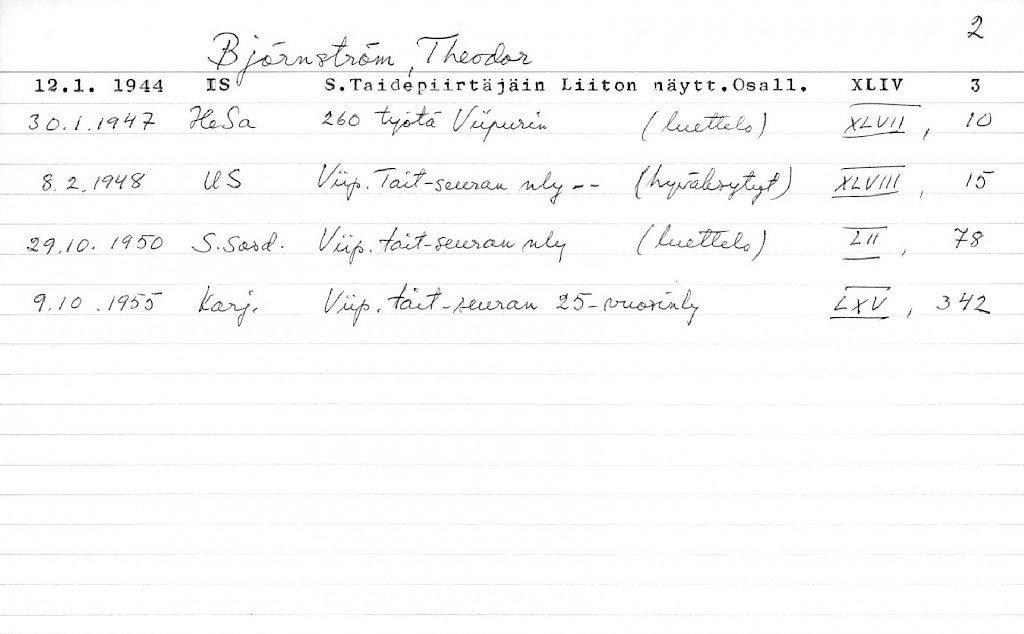 2
Björnström, Theodor
12.1. 1944 IS S.Taidepiirtäjäin Liiton näytt.Osall. XLIV 3
30.1.1947 HeSa 260 työtä Viipurin (luettelo) XLVII, 10
8.2.1948 US Viip. Tait-seuran nly -- (hyväksytyt) XLVIII, 15
29.10.1950 S.Sosd. Viip. tait-seuran nly (luettelo) LII, 78
9.10.1955 Karj. Viip. tait-seuran 25-vuosinly LXV, 342